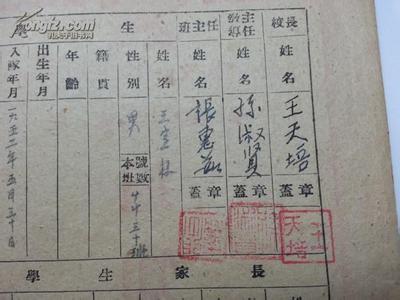 校長
姓名
王天培
蓋章
王天培
教導主任
姓名
孫淑贤
蓋章
班主任
姓名
張惠
蓋章
學生
姓名
王
性別
男
本班號数
三十
籍貫
年齡
出生年月
入隊年月
一九五二年五月三十日
學生家長